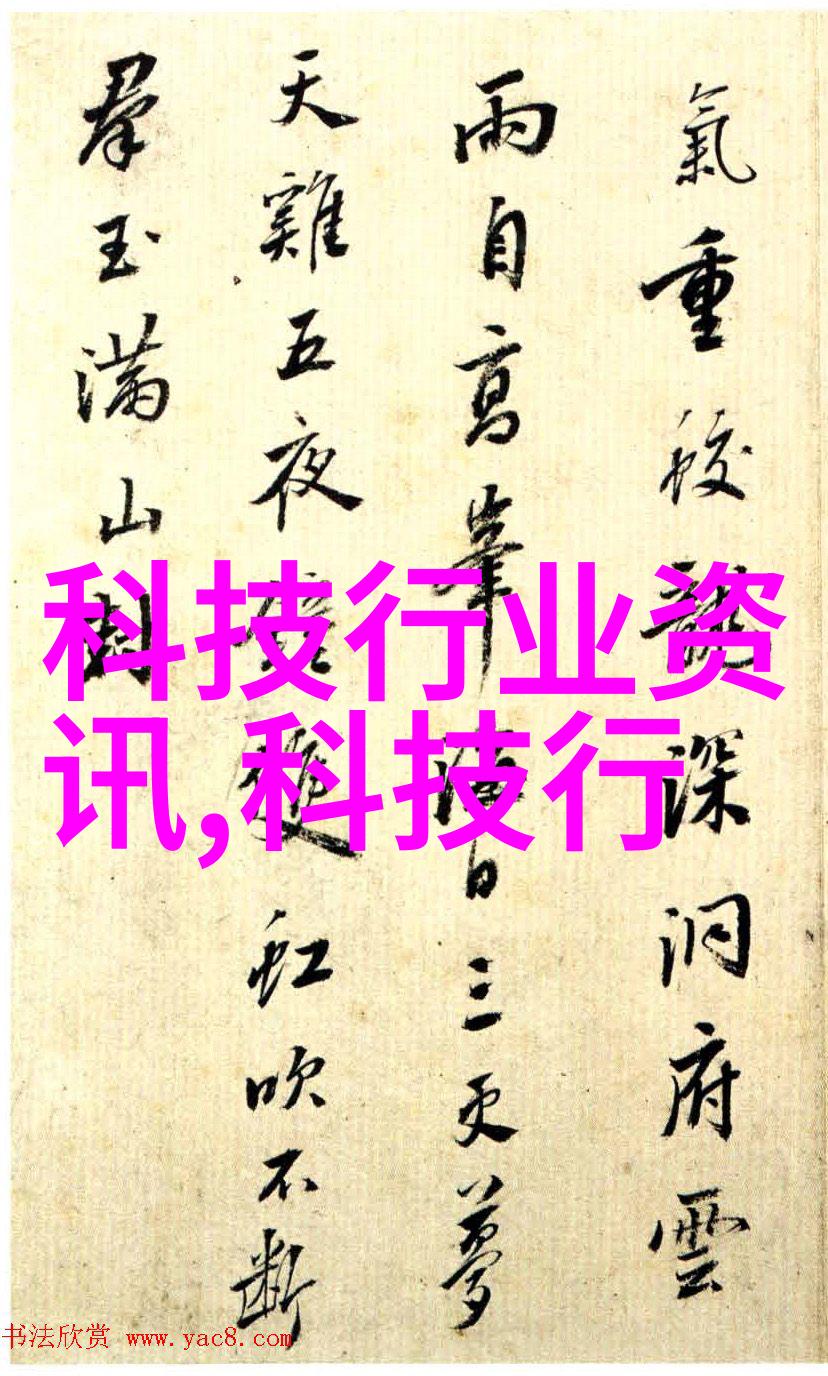 氣重蛟龍深洞府雲
雨自高峯 日三更夢
天雞五夜 雙虹吹不斷
羣玉滿山封
科技行业资
讯,科技行
书法欣赏 www.yac8.com